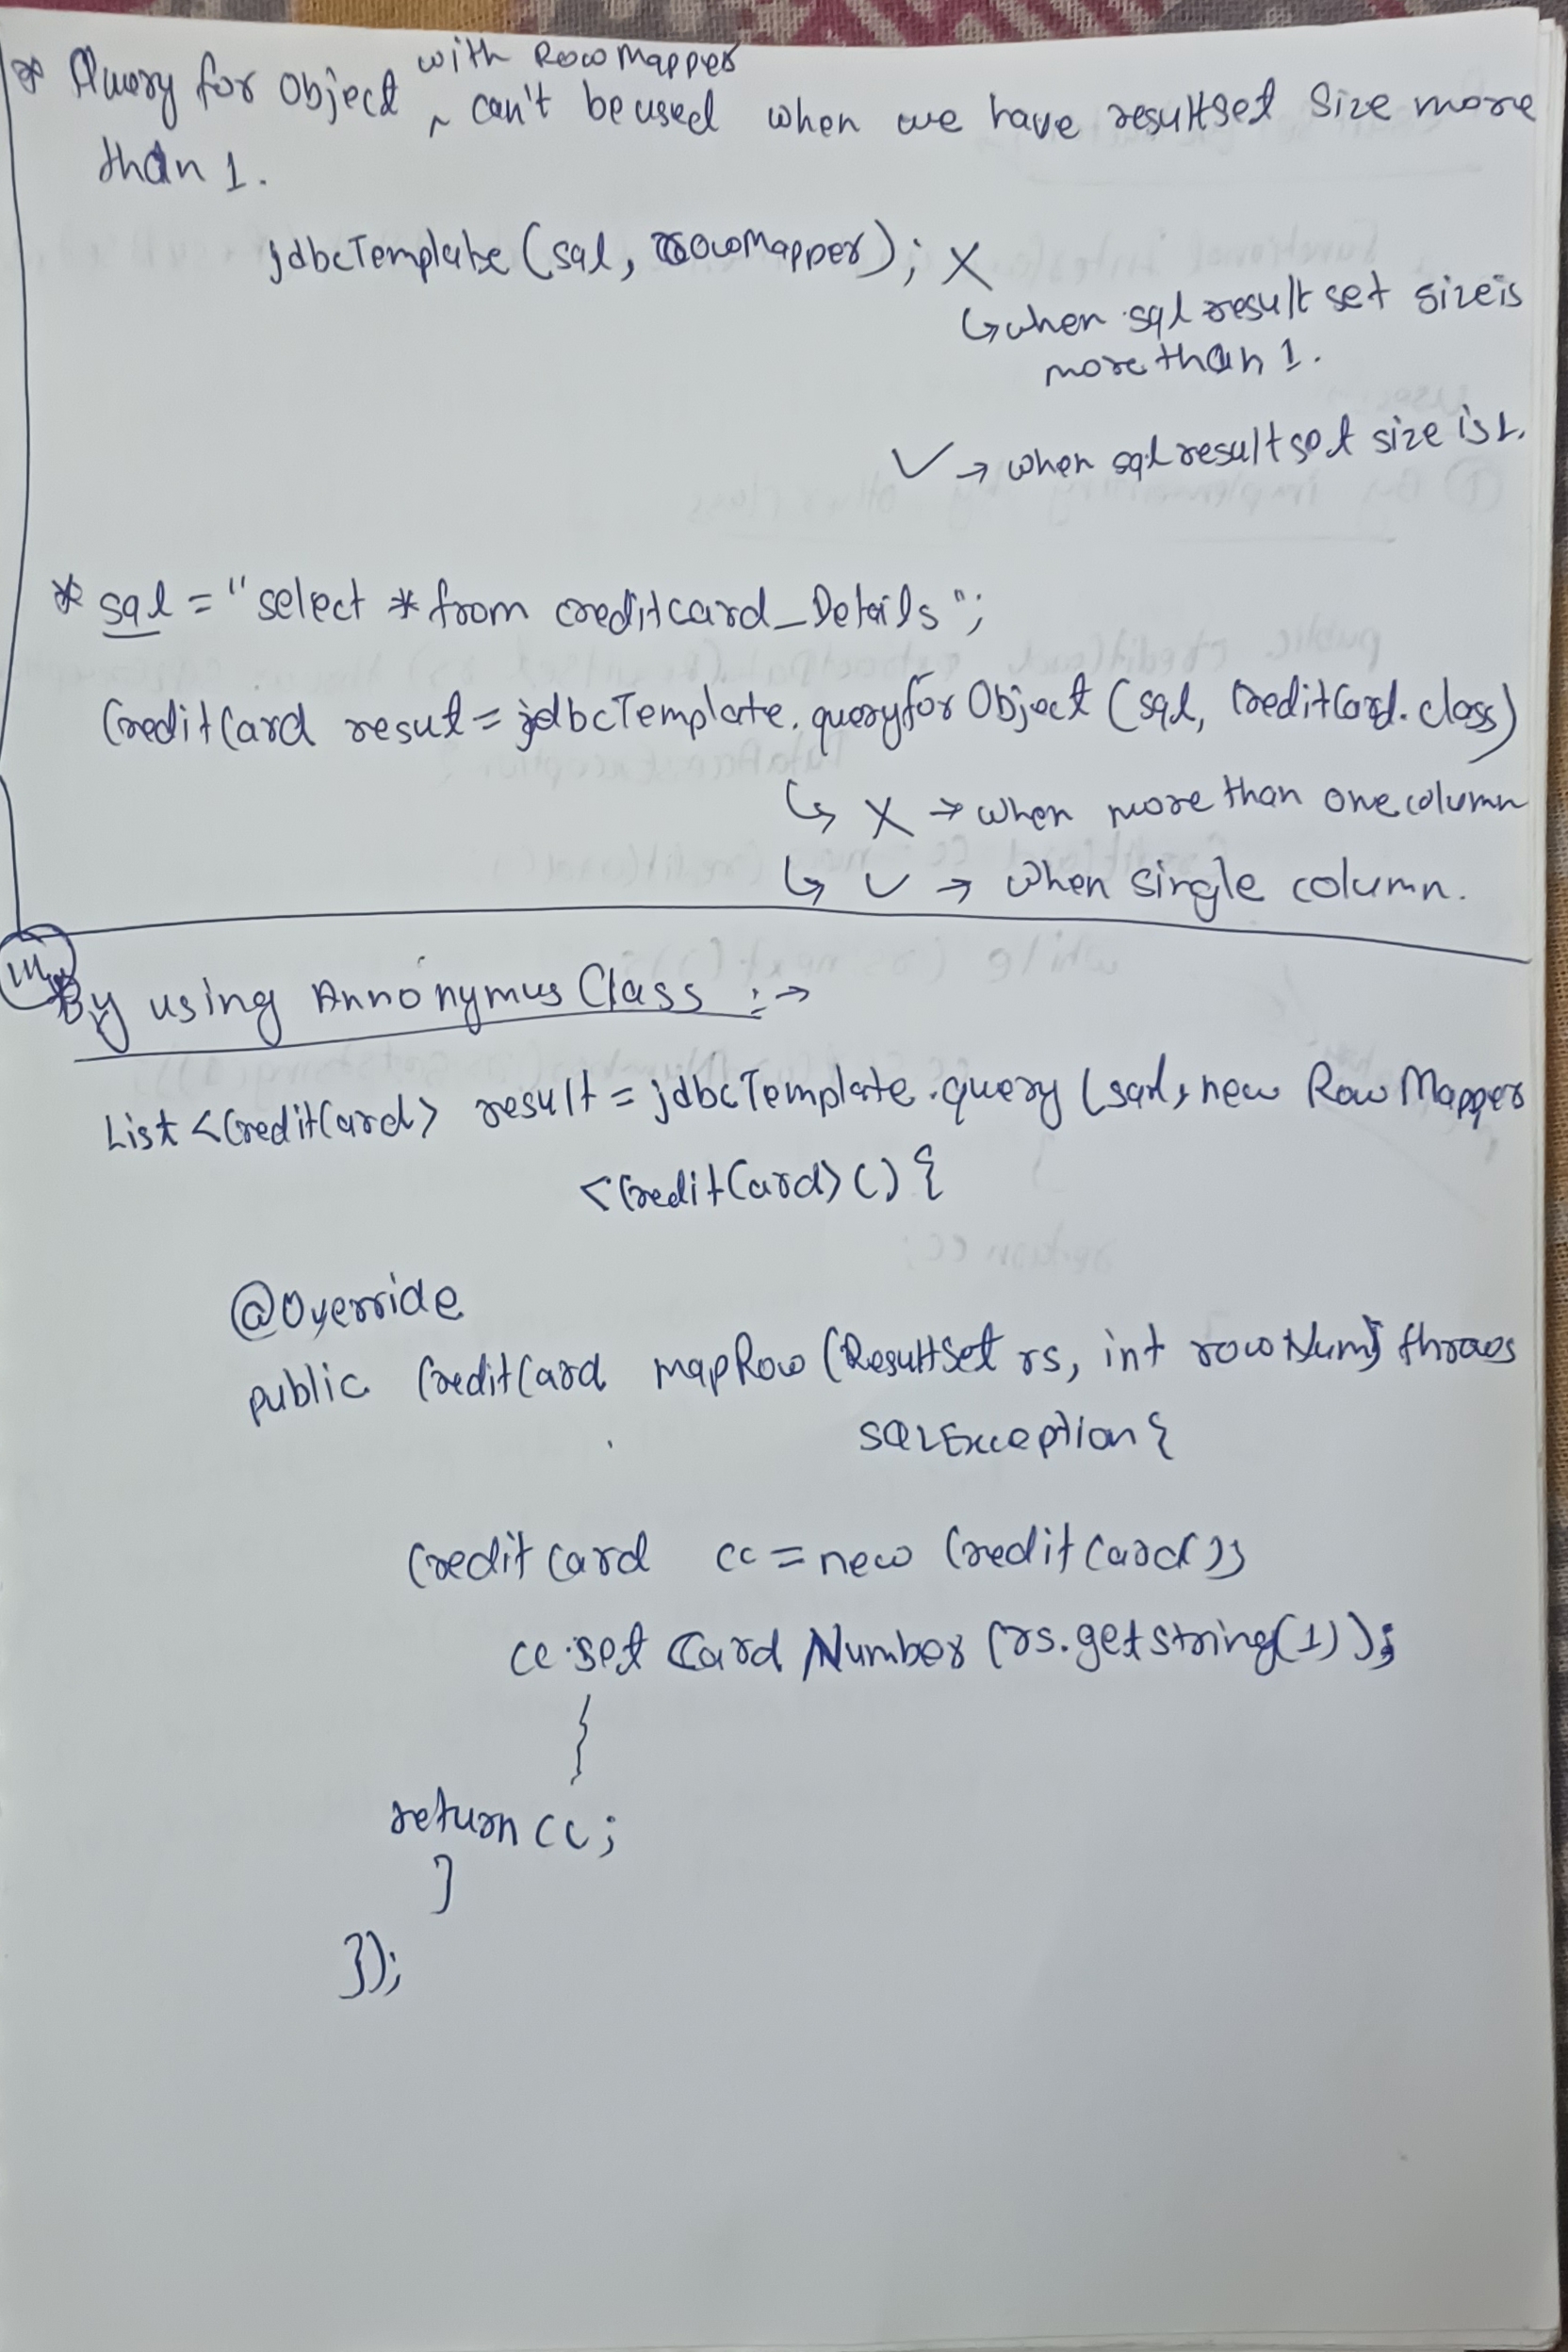 with RowMapper
* Query for Object ^ can't be used when we have resultset size more
than 1.
jdbcTemplate (sql, rowMapper); X
↳ when sql result set size is
more than 1.
✓ → when sql resultset size is 1.
* sql = "select * from creditcard_Details";
CreditCard result = jdbcTemplate.queryforObject (sql, CreditCard.class)
↳ X → when more than one column
↳ ✓ → when single column.
III By using Annonymus Class :→
List <CreditCard> result = jdbcTemplate.query (sql, new RowMapper
<CreditCard>() {
@Override
public CreditCard mapRow (ResultSet rs, int rowNum) throws
SQLException {
Credit Card cc = new CreditCard();
cc.set Card Number (rs.getstring(1));
return cc;
}
});